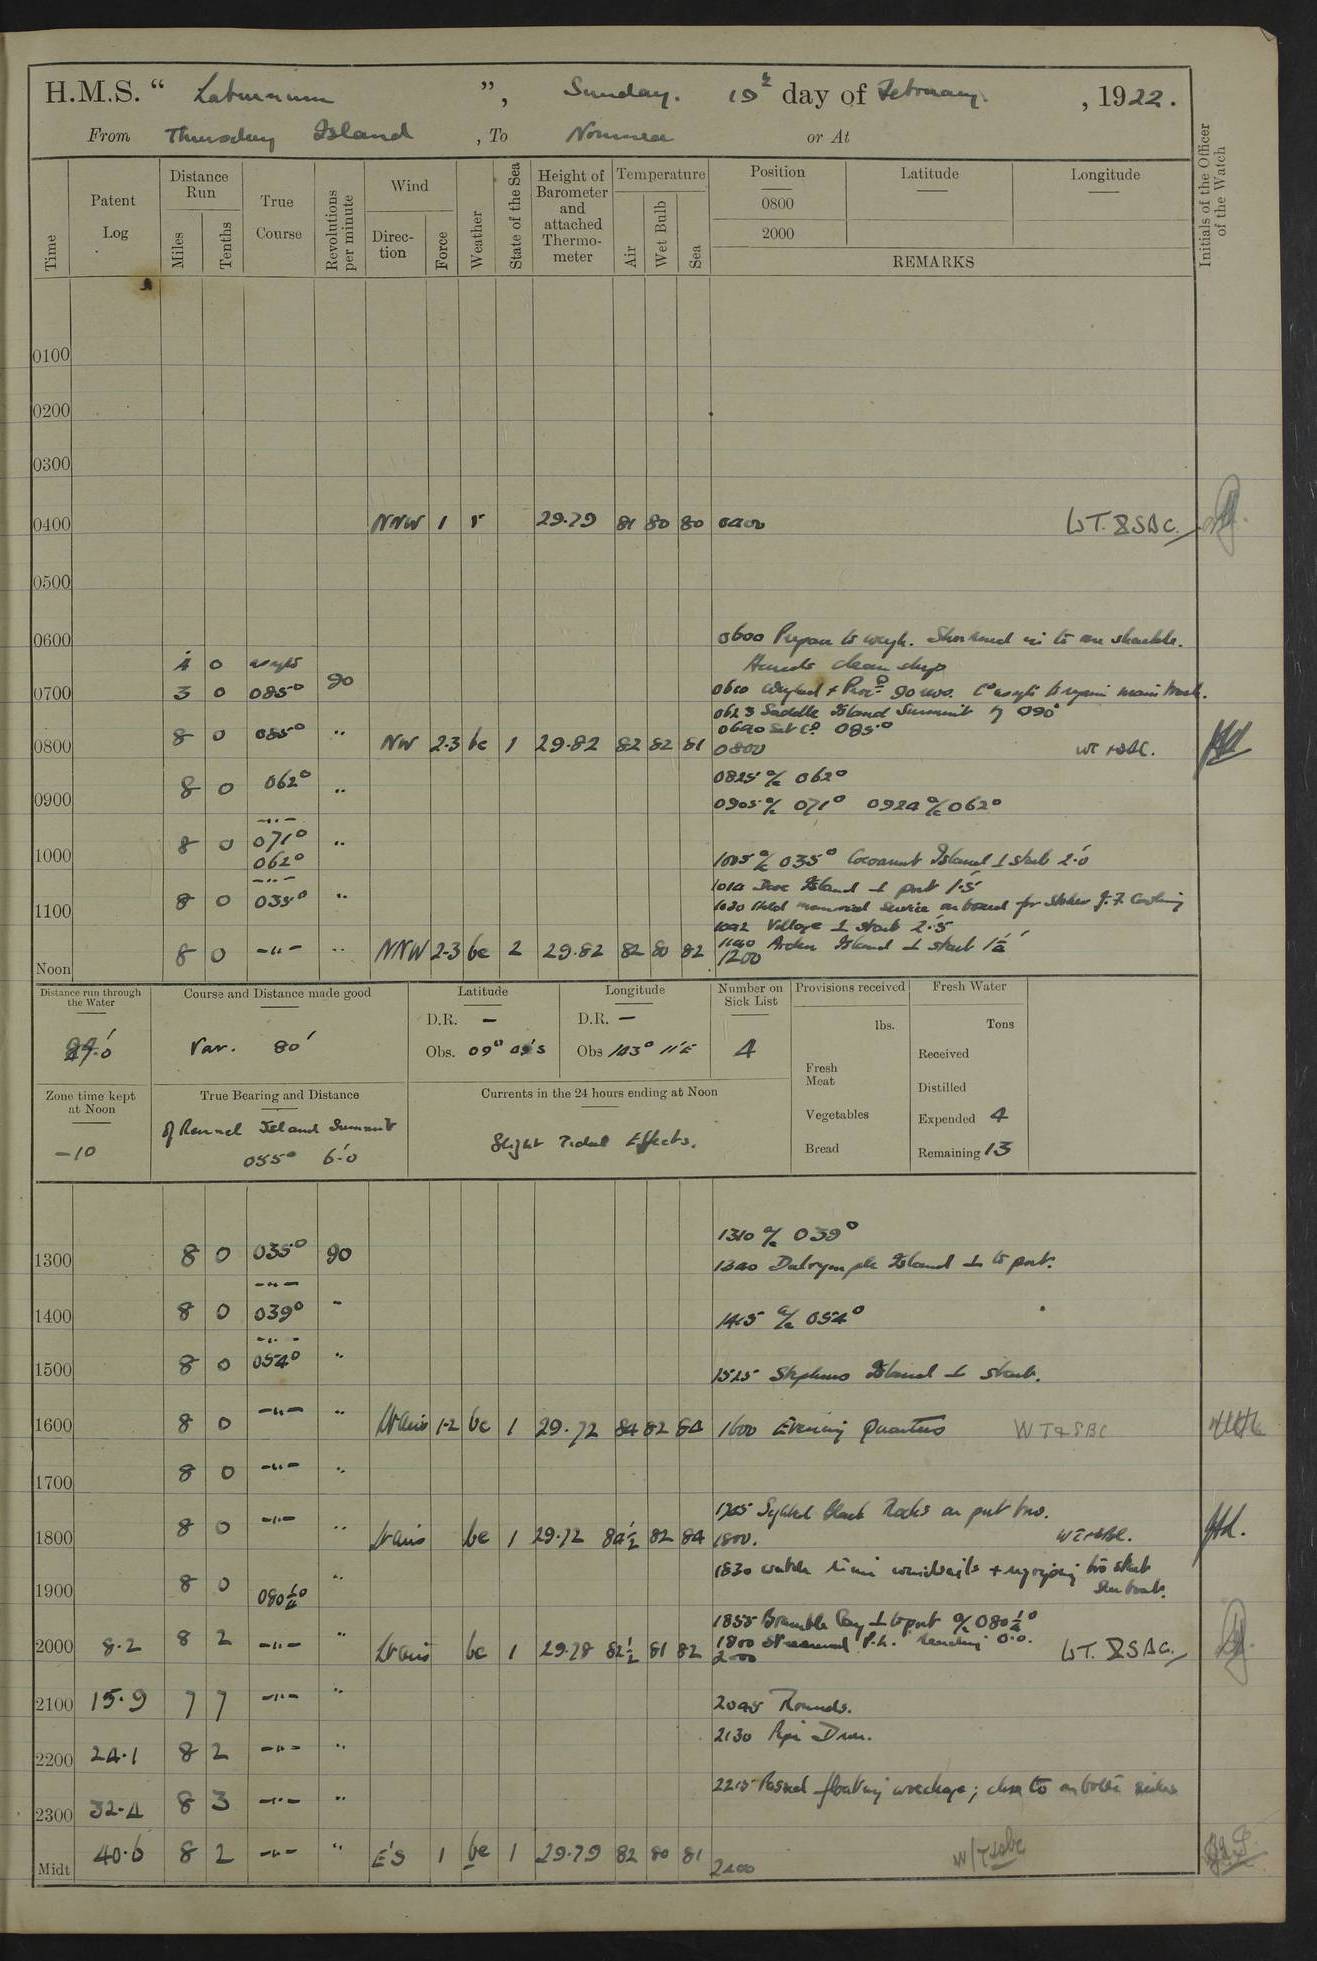 H.M.S. “ Laburnum ”, Sunday. 19th day of February. , 1922.
From Thursday Island , To Noumea or At
Time
Patent Log
Distance Run
Miles
Tenths
True Course
Revolutions per minute
Wind
Direction
Force
Weather
State of the Sea
Height of Barometer and attached Thermometer
Temperature
Air
Wet Bulb
Sea
Position Latitude Longitude
0800
2000
REMARKS
Initials of the Officer of the Watch
0100
0200
0300
0400 NNW 1 r 29.79 81 80 80 0400 WT. & SBC.
0500
0600 0600 Prepare to weigh. Shortened in to one shackle.
Hands clean ship
4 0 asreqte
0700 3 0 085° 90 0610 Weighed & Procd 90 revs. Co asreqte to regain main track.
0623 Saddle Island Summit 090°
0640 Set Co 085°
0800 8 0 085° " NW 2-3 bc 1 29.82 82 82 81 0800 WT & SBC.
0825 a/c 062°
0900 8 0 062° " 0905 a/c 071° 0924 a/c 062°
1000 8 0 -"- 071° 062° " 1005 a/c 035° Cocoanut Island ⊥ starb 2.0
1014 Dove Island ⊥ port 1.5
1100 8 0 -"- 035° " 1030 Held memorial service on board for Stoker
1042 Village ⊥ starb 2.5
1140 Arden Island ⊥ starb
Noon 8 0 -"- " NNW 2-3 bc 2 29.82 82 80 82 1200
Distance run through the Water
Course and Distance made good
Var. 80'
Latitude
D.R. —
Obs. 09° S
Longitude
D.R. —
Obs 143° 11'E
Number on Sick List
4
Provisions received
lbs.
Fresh Meat
Vegetables
Bread
Fresh Water
Tons
Received
Distilled
Expended 4
Remaining 13
Zone time kept at Noon
-10
True Bearing and Distance
of Rennel Island Summit
055° 6.0
Currents in the 24 hours ending at Noon
Slight Tidal Effects.
1310 a/c 039°
1300 8 0 035° 90 1340 Dalrymple Island ⊥ to port.
1400 8 0 -"- 039° " 1415 a/c 054°
1500 8 0 -"- 054° " 1525 Stephens Island ⊥ starb.
1600 8 0 -"- " Airs 1-2 bc 1 29.72 84 82 84 1600 Evening Quarters WT & SBC
1700 8 0 -"- "
Sighted Black Rocks on port bow.
1800 8 0 -"- " airs bc 1 29.72 84½ 82 84 1800. WT & SBC.
1900 8 0 080¼° " 1830 windsails +
1855 Bramble Cay ⊥ to port a/c 080¼°
1800 Streamed P.L. Reading 0.0.
2000 8.2 8 2 -"- " airs bc 1 29.78 82½ 81 82 2000 WT. & SBC.
2100 15.9 7 7 -"- " 2045 Rounds.
2130 Pipe Down.
2200 24.1 8 2 -"- "
2215 Passed floating wreckage; close to on both sides
2300 32.4 8 3 -"- "
Midt 40.6 8 2 -"- " E'S 1 bc 1 29.79 82 80 81 2400 W/T & sbc